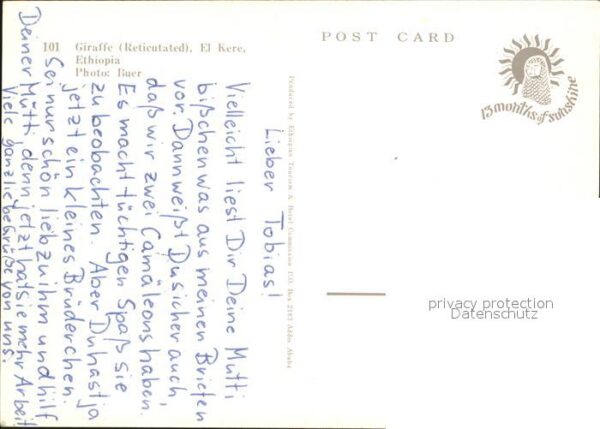 101 Giraffe (Reticutated), El Kere,
Ethiopia
Photo: Buer
POST CARD
13 months of sunshine
Produced by Ethiopian Tourism & Hotel Commission P.O. Box 2183 Addis Ababa
Lieber Tobias!
Vielleicht liest Dir Deine Mutti
bißchen was aus meinen Briefen
vor. Dann weißt Du sicher auch,
daß wir zwei Camäleons haben.
Es macht tüchtigen Spaß sie
zu beobachten. Aber Du hast ja
jetzt ein kleines Brüderchen.
Sei nur schön lieb zu ihm und hilf
Deiner Mutti, denn jetzt hat sie mehr Arbeit
Viele ganz liebe Grüße von uns.
privacy protection
Datenschutz